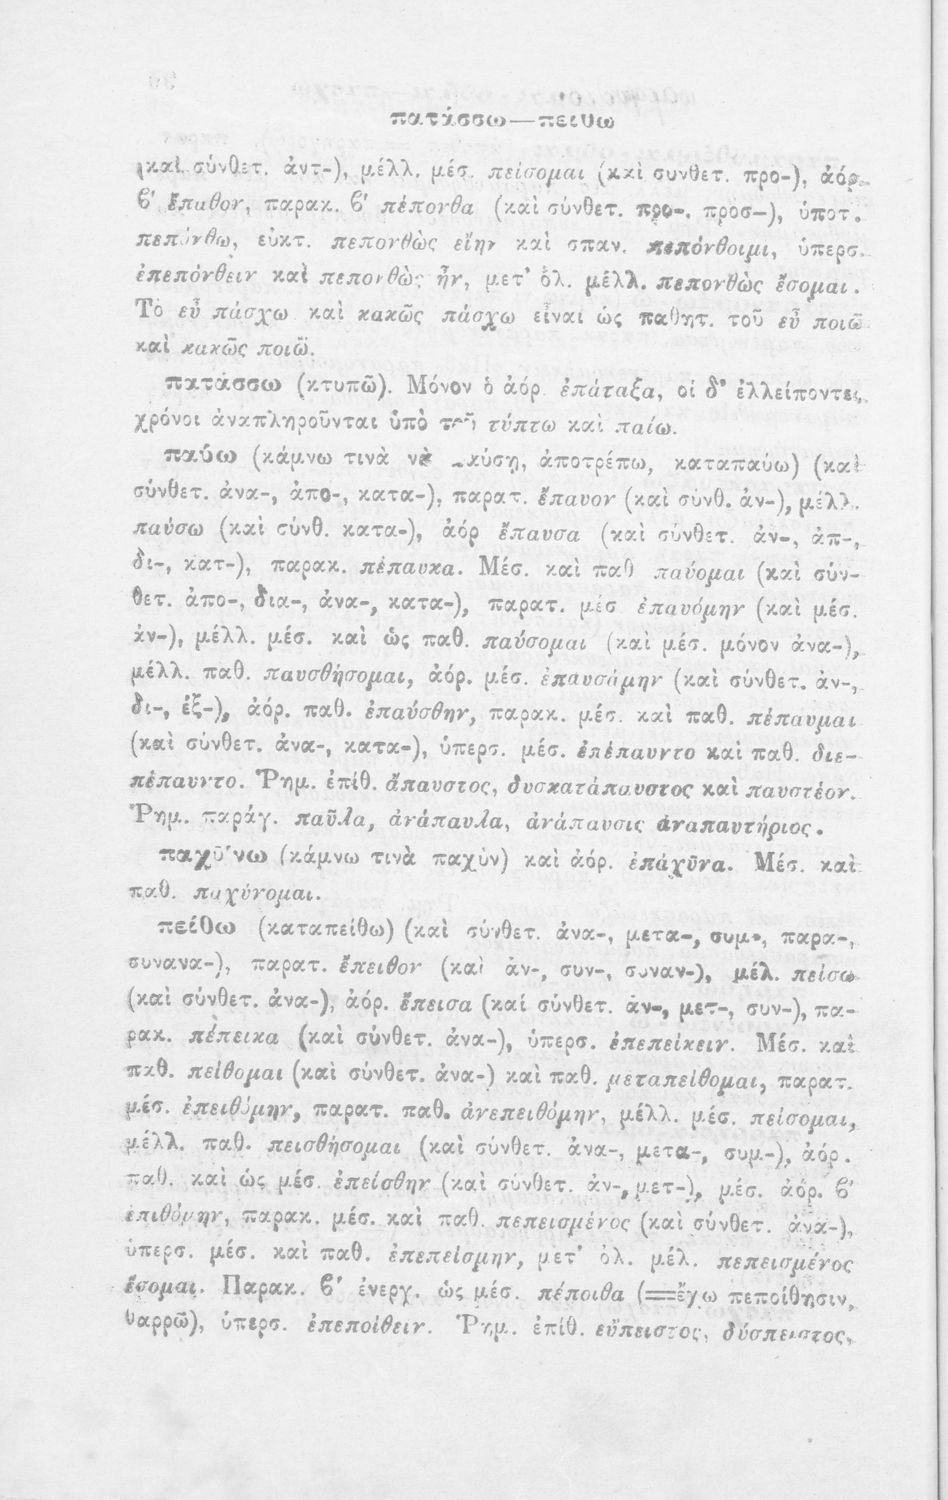 πατάσσω—πειθω
(καὶ σύνθετ. ἀντ-), μέλλ. μέσ. πείσομαι (καὶ συνθετ. προ-), ἀόρ.
β′ ἔπαθον, παρακ. β′ πέπονθα (καὶ σύνθετ. προ-. προσ-), ὑποτ.
πεπόνθω, εὐκτ. πεπονθὼς εἴην καὶ σπαν. πεπόνθοιμι, ὑπερσ.
ἐπεπόνθειν καὶ πεπονθὼς ἦν, μετ' ὀλ. μέλλ. πεπονθὼς ἔσομαι.
Τὸ εὖ πάσχω καὶ κακῶς πάσχω εἶναι ὡς παθητ. τοῦ εὖ ποιῶ
καὶ κακῶς ποιῶ.
πατάσσω (κτυπῶ). Μόνον ὁ ἀόρ. ἐπάταξα, οἱ δ' ἐλλείποντες
χρόνοι ἀναπληροῦνται ὑπὸ τοῦ τύπτω καὶ παίω.
παύω (κάμνω τινὰ νὰ παύσῃ, ἀποτρέπω, καταπαύω) (καὶ
σύνθετ. ἀνα-, ἀπο-, κατα-), παρατ. ἔπαυον (καὶ σύνθ. ἀν-), μέλλ.
παύσω (καὶ σύνθ. κατα-), ἀόρ ἔπαυσα (καὶ σύνθετ. ἀν-, ἀπ-,
δι-, κατ-), παρακ. πέπαυκα. Μέσ. καὶ παθ παύομαι (καὶ σύν-
θετ. ἀπο-, δια-, ἀνα-, κατα-), παρατ. μέσ ἐπαυόμην (καὶ μέσ.
ἀν-), μέλλ. μέσ. καὶ ὡς παθ. παύσομαι (καὶ μέσ. μόνον ἀνα-),
μέλλ. παθ. παυσθήσομαι, ἀόρ. μέσ. ἐπαυσάμην (καὶ σύνθετ. ἀν-,
δι-, ἐξ-), ἀόρ. παθ. ἐπαύσθην, παρακ. μέσ. καὶ παθ. πέπαυμαι
(καὶ σύνθετ. ἀνα-, κατα-), ὑπερσ. μέσ. ἐπέπαυντο καὶ παθ. διε-
πέπαυντο. Ῥημ. ἐπίθ. ἄπαυστος, δυσκατάπαυστος καὶ παυστέον.
Ῥημ. παράγ. παῦλα, ἀνάπαυλα, ἀνάπαυσις ἀναπαυτήριος.
παχύνω (κάμνω τινὰ παχὺν) καὶ ἀόρ. ἐπάχῡνα. Μέσ. καὶ
παθ. παχύνομαι.
πείθω (καταπείθω) (καὶ σύνθετ. ἀνα-, μετα-, συμ-, παρα-,
συνανα-), παρατ. ἔπειθον (καὶ ἀν-, συν-, συναν-), μέλ. πείσω
(καὶ σύνθετ. ἀνα-), ἀόρ. ἔπεισα (καί σύνθετ. ἀν-, μετ-, συν-), πα-
ρακ. πέπεικα (καὶ σύνθετ. ἀνα-), ὑπερσ. ἐπεπείκειν. Μέσ. καὶ
παθ. πείθομαι (καὶ σύνθετ. ἀνα-) καὶ παθ. μεταπείθομαι, παρατ.
μέσ. ἐπειθόμην, παρατ. παθ. ἀνεπειθόμην, μέλλ. μέσ. πείσομαι,
μέλλ. παθ. πεισθήσομαι (καὶ σύνθετ. ἀνα-, μετα-, συμ-), ἀόρ.
παθ. καὶ ὡς μέσ. ἐπείσθην (καὶ σύνθετ. ἀν-, μετ-), μέσ. ἀόρ. β′
ἐπιθόμην, παρακ. μέσ. καὶ παθ. πεπεισμένος (καὶ σύνθετ. ἀνα-),
ὑπερσ. μέσ. καὶ παθ. ἐπεπείσμην, μετ' ὀλ. μέλ. πεπεισμένος
ἔσομαι. Παρακ. β′ ἐνεργ. ὡς μέσ. πέποιθα (=ἔχω πεποίθησιν,
θαρρῶ), ὑπερσ. ἐπεποίθειν. Ῥημ. ἐπίθ. εὔπειστος, δύσπειστος,